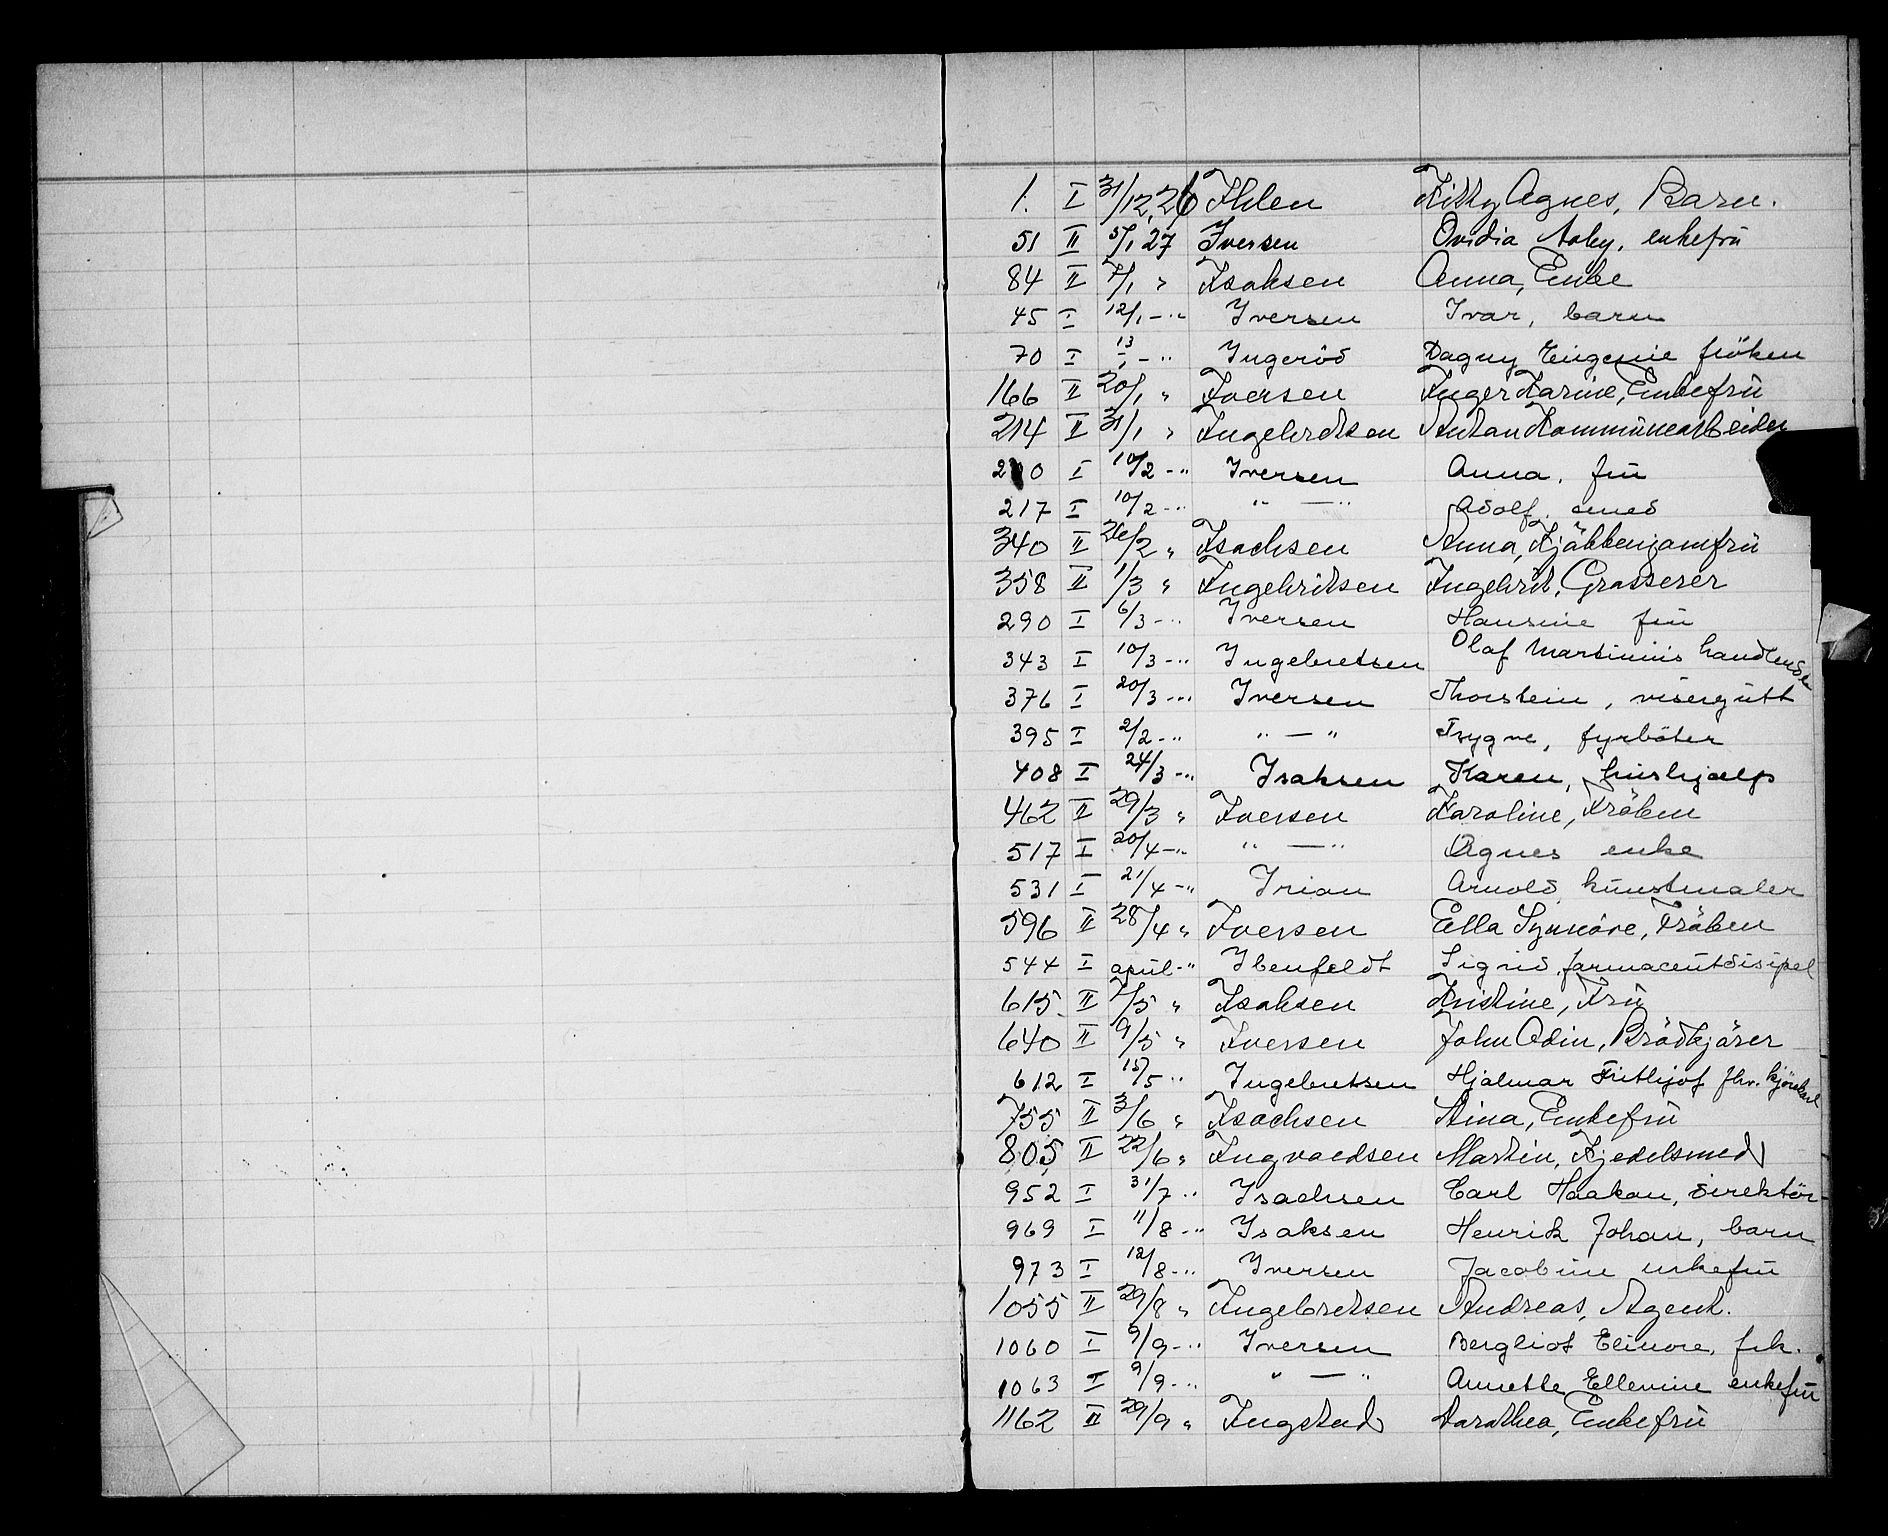 1. I 31/12,26 Ihlen Kitty Agnes, Barn.
51 II 5/1 27 Iversen Ovidia Aaby, enkefrü
84 II 7/1 " Isaksen Anna, Enke
45 I 12/1 - " Iversen Ivar, barn
70 I 13/1 - " Ingeröd Dagny Eugenie fröken
166 II 20/1 " Iversen Inger Karine, Enkefrü
214 II 31/1 " Ingebretsen Anton Kommünearbeider
I 10/2 - " Iversen Anna, frü
217 I 10/2 - " " — " Adolf, smed
340 II 26/2 " Isachsen Anna, frü
358 II 1/3 " Ingebritsen Ingebrit, Grosserer
290 I 6/3 - " Iversen Hansine frü
343 I 10/3 - " Ingebretsen Olaf Martinius handlende
376 I 20/3 - " Iversen Thorstein, visergütt
395 I 2/2 - " " — " Trygve, fyrböter
408 I 24/3 - " Isaksen Karen, hüshjælp
462 II 29/3 " Iversen Karoline, Fröken
517 I 20/4 - " " — " Agnes enke
531 I 21/4 - " Irion Arnold künstmaler
596 II 28/4 " Iversen Ella Synnöve, Fröken
544 I april - " Ibenfeldt Sigrid, farmaceütdisipel
615 II 2/5 " Isaksen Kristine, Frü
640 II 9/5 " Iversen John Odin, Brödkjörer
612 I 15/5 " Ingebretsen Hjalmar Frithjof fhv. kjörekarl
755 II 3/6 " Isachsen Stina, Enkefrü
805 II 22/6 " Ingvaldsen Martin, Kjedelsmed
952 I 31/7 " Isachsen Carl Haakon, direktör
969 I 11/8 - " Isaksen Henrik Johan, barn
973 I 12/8 - " Iversen Jacobine enkefrü
1055 II 29/8 " Ingebretsen Andreas, Agent.
1060 I 9/9 - " Iversen Bergliot Elinore, frk.
1063 I 9/9 - " " — " Annette Ellevine enkefrü
1162 II 29/9 " Ingstad Dorothea, Enkefrü